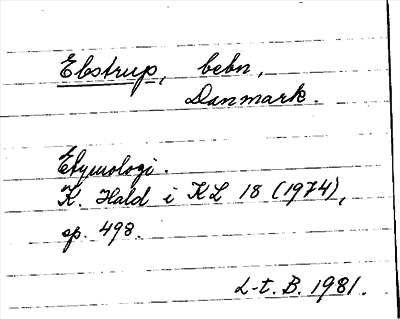 Ebstrup, bebn,
Danmark.
Etymologi.
K. Hald i KL 18 (1974),
sp. 498.
L-t. B. 1981.